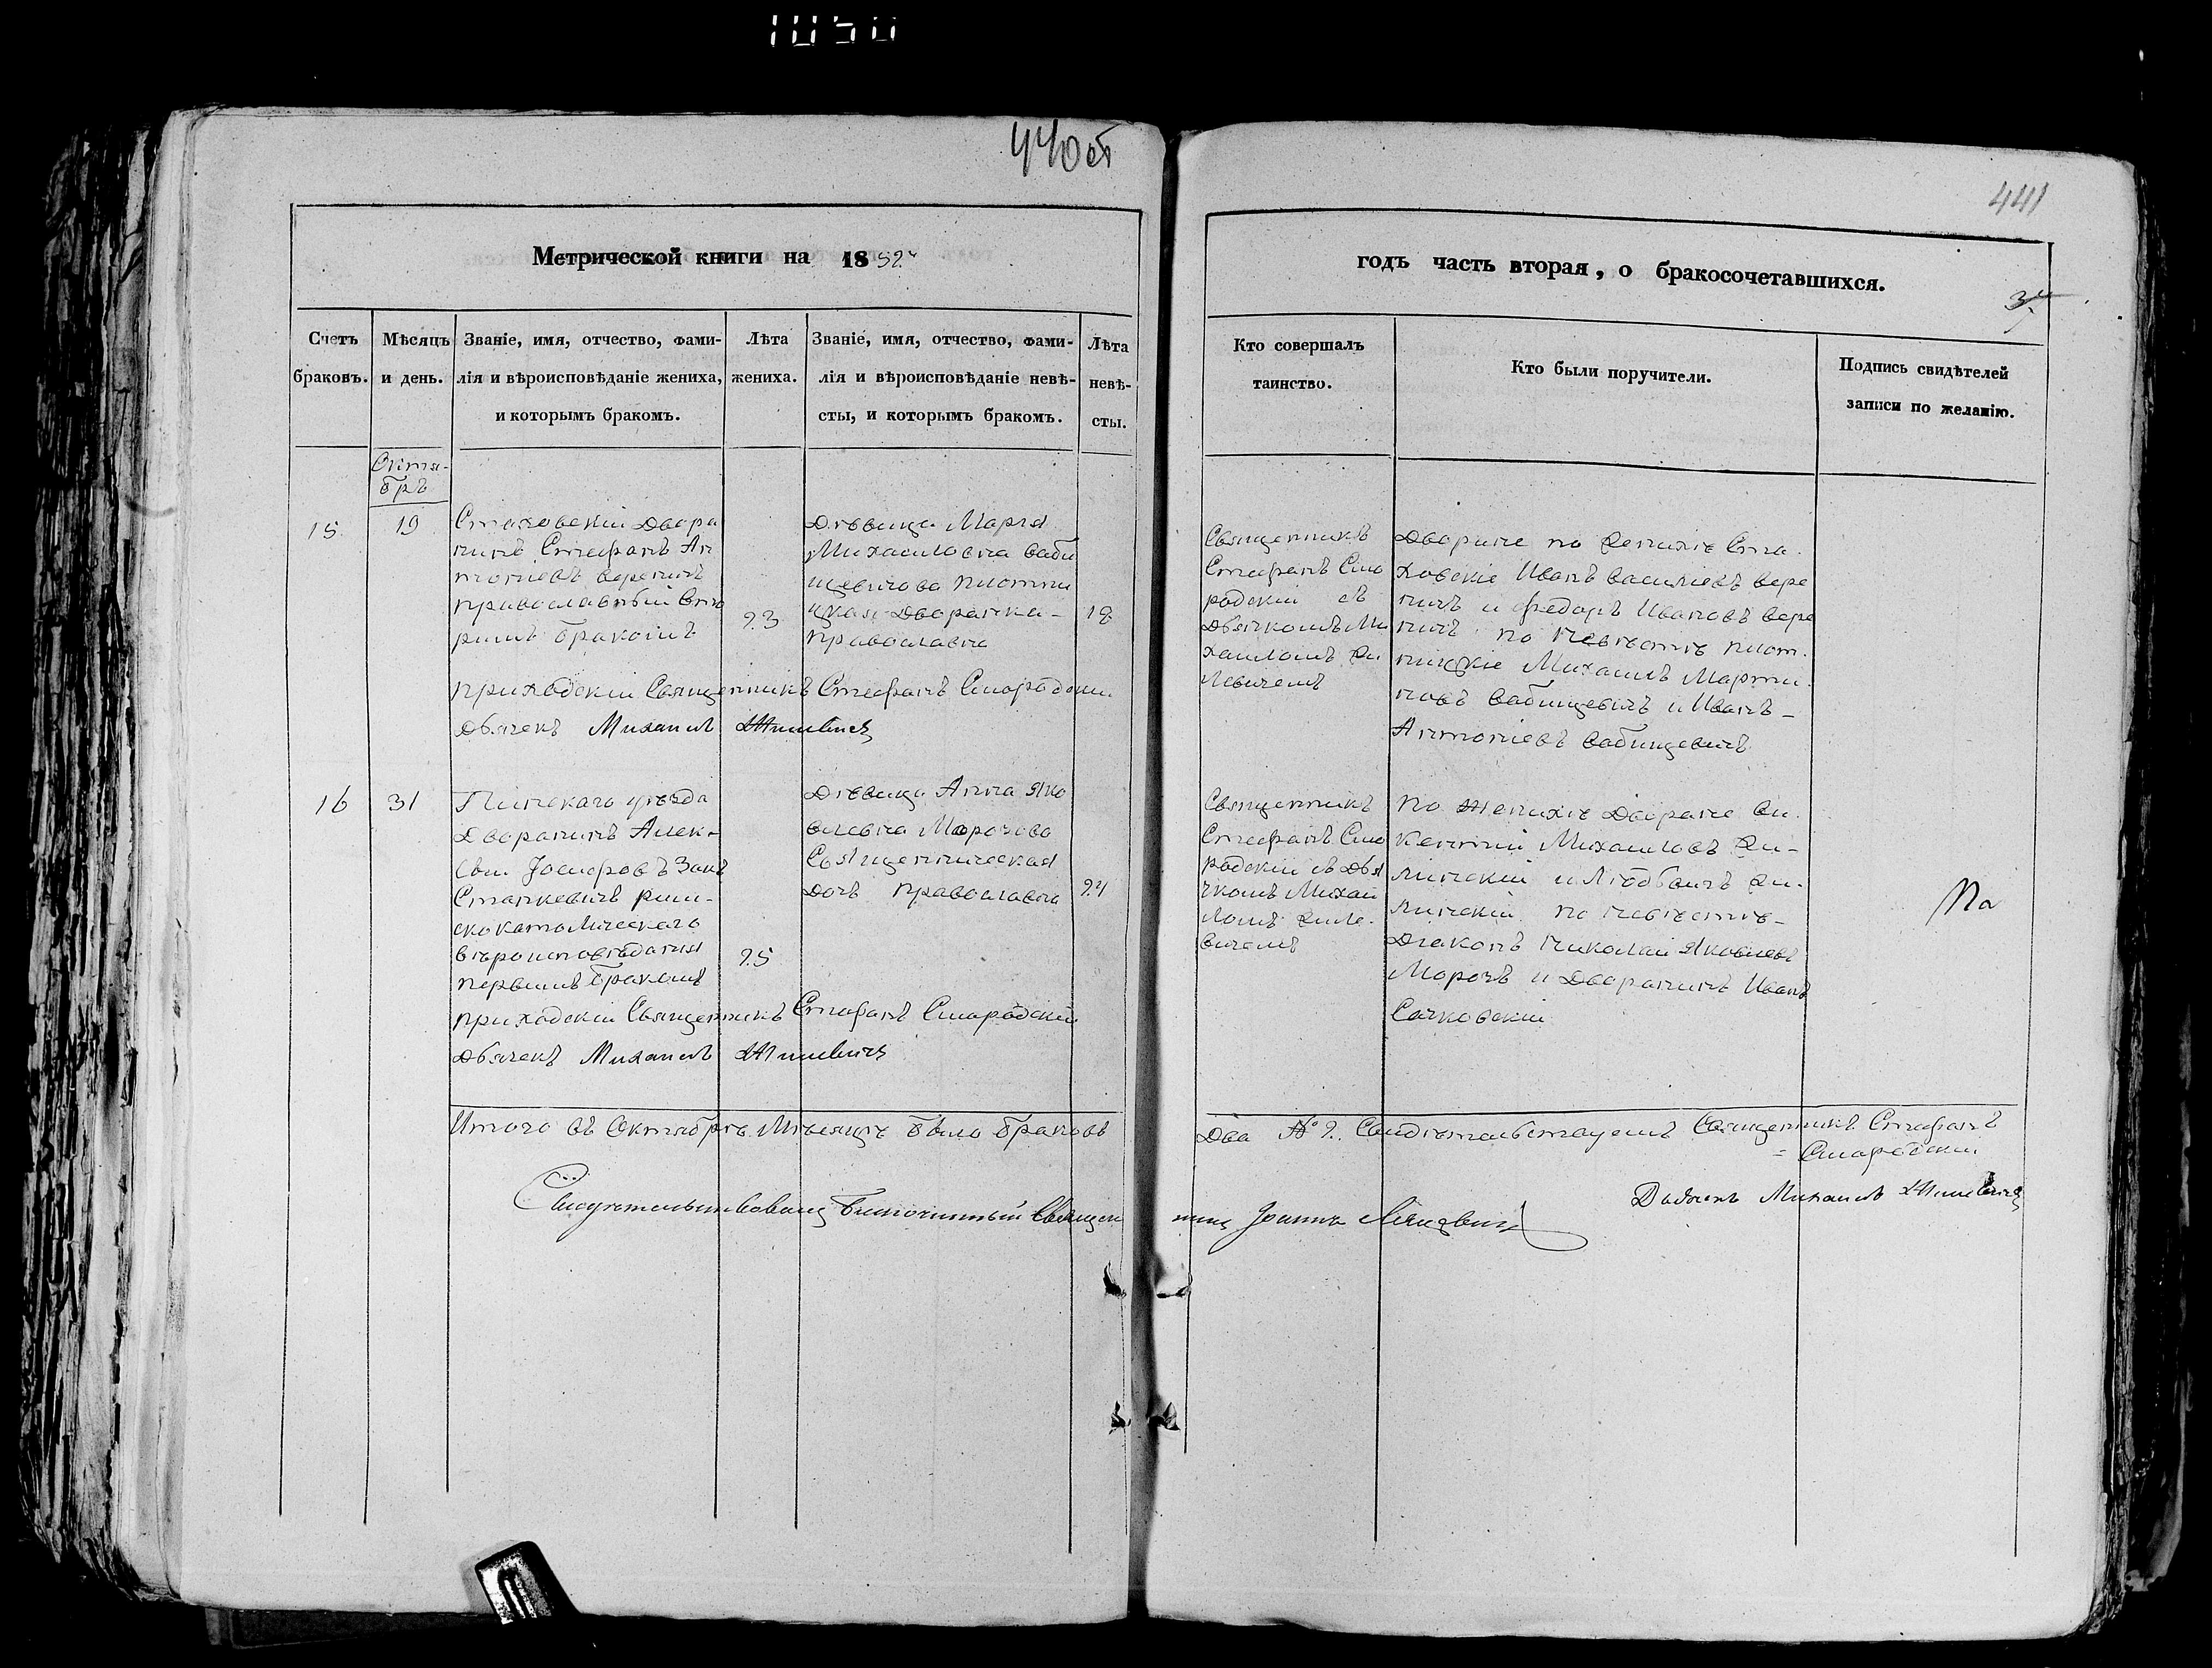 1050
440об
441
Метрической книги на 1852.
годъ часть вторая, о бракосочетавшихся.
Счетъ
браковъ.
Мѣсяцъ
и день.
Званіе, имя, отчество, фами-
лія и вѣроисповѣданіе жениха,
и которымъ бракомъ.
Лѣта
жениха.
Званіе, имя, отчество, фами-
лія и вѣроисповѣданіе невѣ-
сты, и которымъ бракомъ.
Лѣта
невѣ-
сты.
Кто совершалъ
таинство.
Кто были поручители.
Подпись свидѣтелей
записи по желанію.
Октя-
бръ
15
19
Стаховскій Дворя
нинъ Стефанъ Ан
тоніевъ Вереничъ
православный вто
рымъ бракомъ
23
Дѣвица Марія
Михаиловна Баби
щевичова Плотни
цкая Дворянка-
православна
18
Священникъ
Стефанъ Смо
родскій съ
Дьячкомъ Ми
хаиломъ Жи
левичемъ
Дворяне по Женихѣ Ста-
ховскіе Иванъ Василіевъ Вере
ничъ и Федоръ Ивановъ Вере
ничъ по Невѣстѣ Плот-
ницкіе Михаилъ Марти-
новъ Бабищевичъ и Иванъ-
Антоніевъ Бабищевичъ
приходскій Священникъ Стефанъ Смородскій
Дьячекъ Михаилъ Жилевичъ
16
31
Пинскаго уѣзда
Дворянинъ Алек-
Сѣй Іосифовъ Занъ
Станкевичъ рим-
скокатолическаго
вѣроисповѣданія
первымъ бракомъ
25
Дѣвица Анна Яко
влевна Морозова
Священническая
Дочь православна
24
Священникъ
Стефанъ Смо
родскій съ Дья
чкомъ Михаи
ломъ Жиле-
вичемъ
по Женихѣ Дворяне Ви-
кентій Михаиловъ Жи-
линскій и Людвигъ Жи-
линскій по Невѣстѣ-
Діаконъ Николай Яковлевъ
Морозъ и Дворянинъ Иванъ
Сачковскій
приходскій Священникъ Стефанъ Смородскій
Дьячекъ Михаилъ Жилевичъ
Итого въ Октябрѣ Мѣсяцѣ было браковъ
Два № 2. Свидѣтельствуемъ Священникъ Стефанъ
Смородскій
Дьячекъ Михаилъ Жилевичъ
Свидѣтельствовалъ Благочинный Священ
никъ Іоаннъ